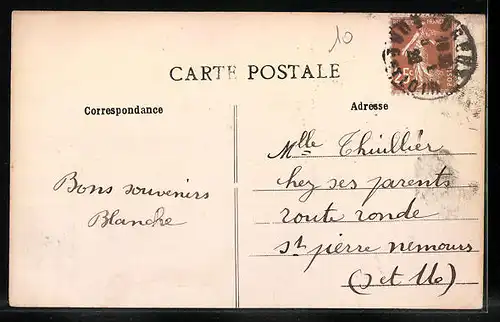 10
CARTE POSTALE
Correspondance
Adresse
Bons souvenirs
Blanche
Mlle Thuillier
hez ses parents
route ronde
St pierre nemours
(S et Me)